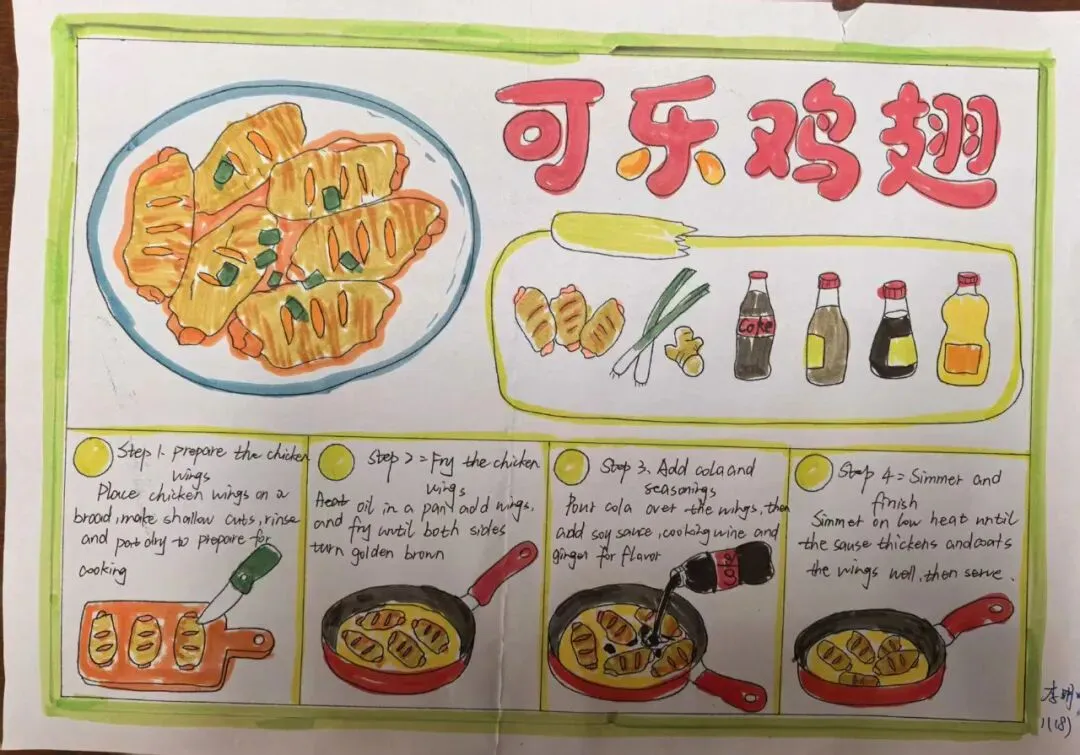 可乐鸡翅
Coke
Step 1. prepare the chicken
wings
Place chicken wings on a
broad, make shallow cuts, rinse
and pat dry to prepare for
cooking
Step 2 = Fry the chicken
wings
Heat oil in a pan, add wings,
and fry until both sides
turn golden brown
Step 3. Add cola and
seasonings
Pour cola over the wings, then
add soy sauce, cooking wine and
ginger for flavor
Coke
Step 4 = Simmer and
finish
Simmer on low heat until
the sause thickens and coats
the wings well, then serve.
李明
11(18)